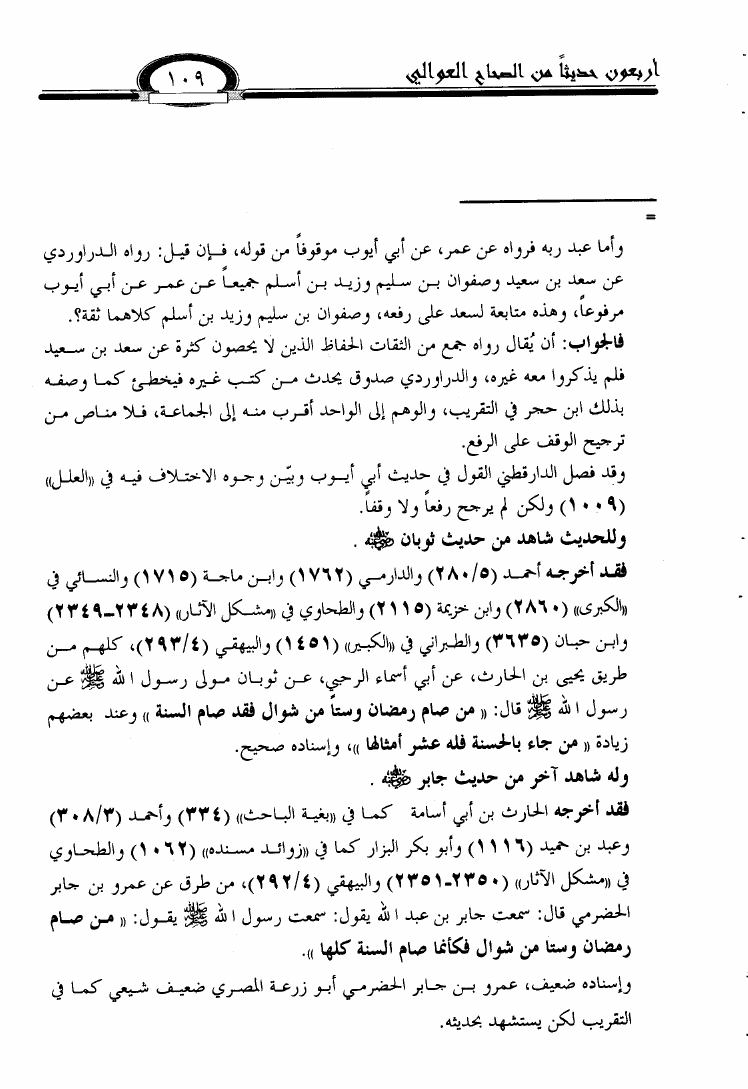 أربعون حديثاً من الصحاح العوالي
١٠٩
=
وأما عبد ربه فرواه عن عمر، عن أبي أيوب موقوفاً من قوله، فإن قيل: رواه الدراوردي
عن سعد بن سعيد وصفوان بن سليم وزيد بن أسلم جميعاً عن عمر عن أبي أيوب
مرفوعاً، وهذه متابعة لسعد على رفعه، وصفوان بن سليم وزيد بن أسلم كلاهما ثقة؟.
فالجواب: أن يُقال رواه جمع من الثقات الحفاظ الذين لا يحصون كثرة عن سعد بن سعيد
فلم يذكروا معه غيره، والدراوردي صدوق يحدث من كتب غيره فيخطئ كما وصفه
بذلك ابن حجر في التقريب، والوهم إلى الواحد أقرب منه إلى الجماعة، فلا مناص من
ترجيح الوقف على الرفع.
وقد فصل الدارقطني القول في حديث أبي أيوب وبيّن وجوه الاختلاف فيه في «العلل»
(١٠٠٩) ولكن لم يرجح رفعاً ولا وقفاً.
وللحديث شاهد من حديث ثوبان رضي الله عنه .
فقد أخرجه أحمد (٢٨٠/٥) والدارمي (١٧٦٢) وابن ماجة (١٧١٥) والنسائي في
«الكبرى» (٢٨٦٠) وابن خزيمة (٢١١٥) والطحاوي في «مشكل الآثار» (٢٣٤٨-٢٣٤٩)
وابن حبان (٣٦٣٥) والطبراني في «الكبير» (١٤٥١) والبيهقي (٢٩٣/٤)، كلهم من
طريق يحيى بن الحارث، عن أبي أسماء الرحبي، عن ثوبان مولى رسول الله ﷺ عن
رسول الله ﷺ قال: « من صام رمضان وستاً من شوال فقد صام السنة » وعند بعضهم
زيادة « من جاء بالحسنة فله عشر أمثالها »، وإسناده صحيح.
وله شاهد آخر من حديث جابر رضي الله عنه .
فقد أخرجه الحارث بن أبي أسامة كما في «بغية الباحث» (٣٣٤) وأحمد (٣٠٨/٣)
وعبد بن حميد (١١١٦) وأبو بكر البزار كما في «زوائد مسنده» (١٠٦٢) والطحاوي
في «مشكل الآثار» (٢٣٥٠-٢٣٥١) والبيهقي (٢٩٢/٤)، من طرق عن عمرو بن جابر
الحضرمي قال: سمعت جابر بن عبد الله يقول: سمعت رسول الله ﷺ يقول: « من صام
رمضان وستا من شوال فكأنما صام السنة كلها ».
وإسناده ضعيف، عمرو بن جابر الحضرمي أبو زرعة المصري ضعيف شيعي كما في
التقريب لكن يستشهد بحديثه.